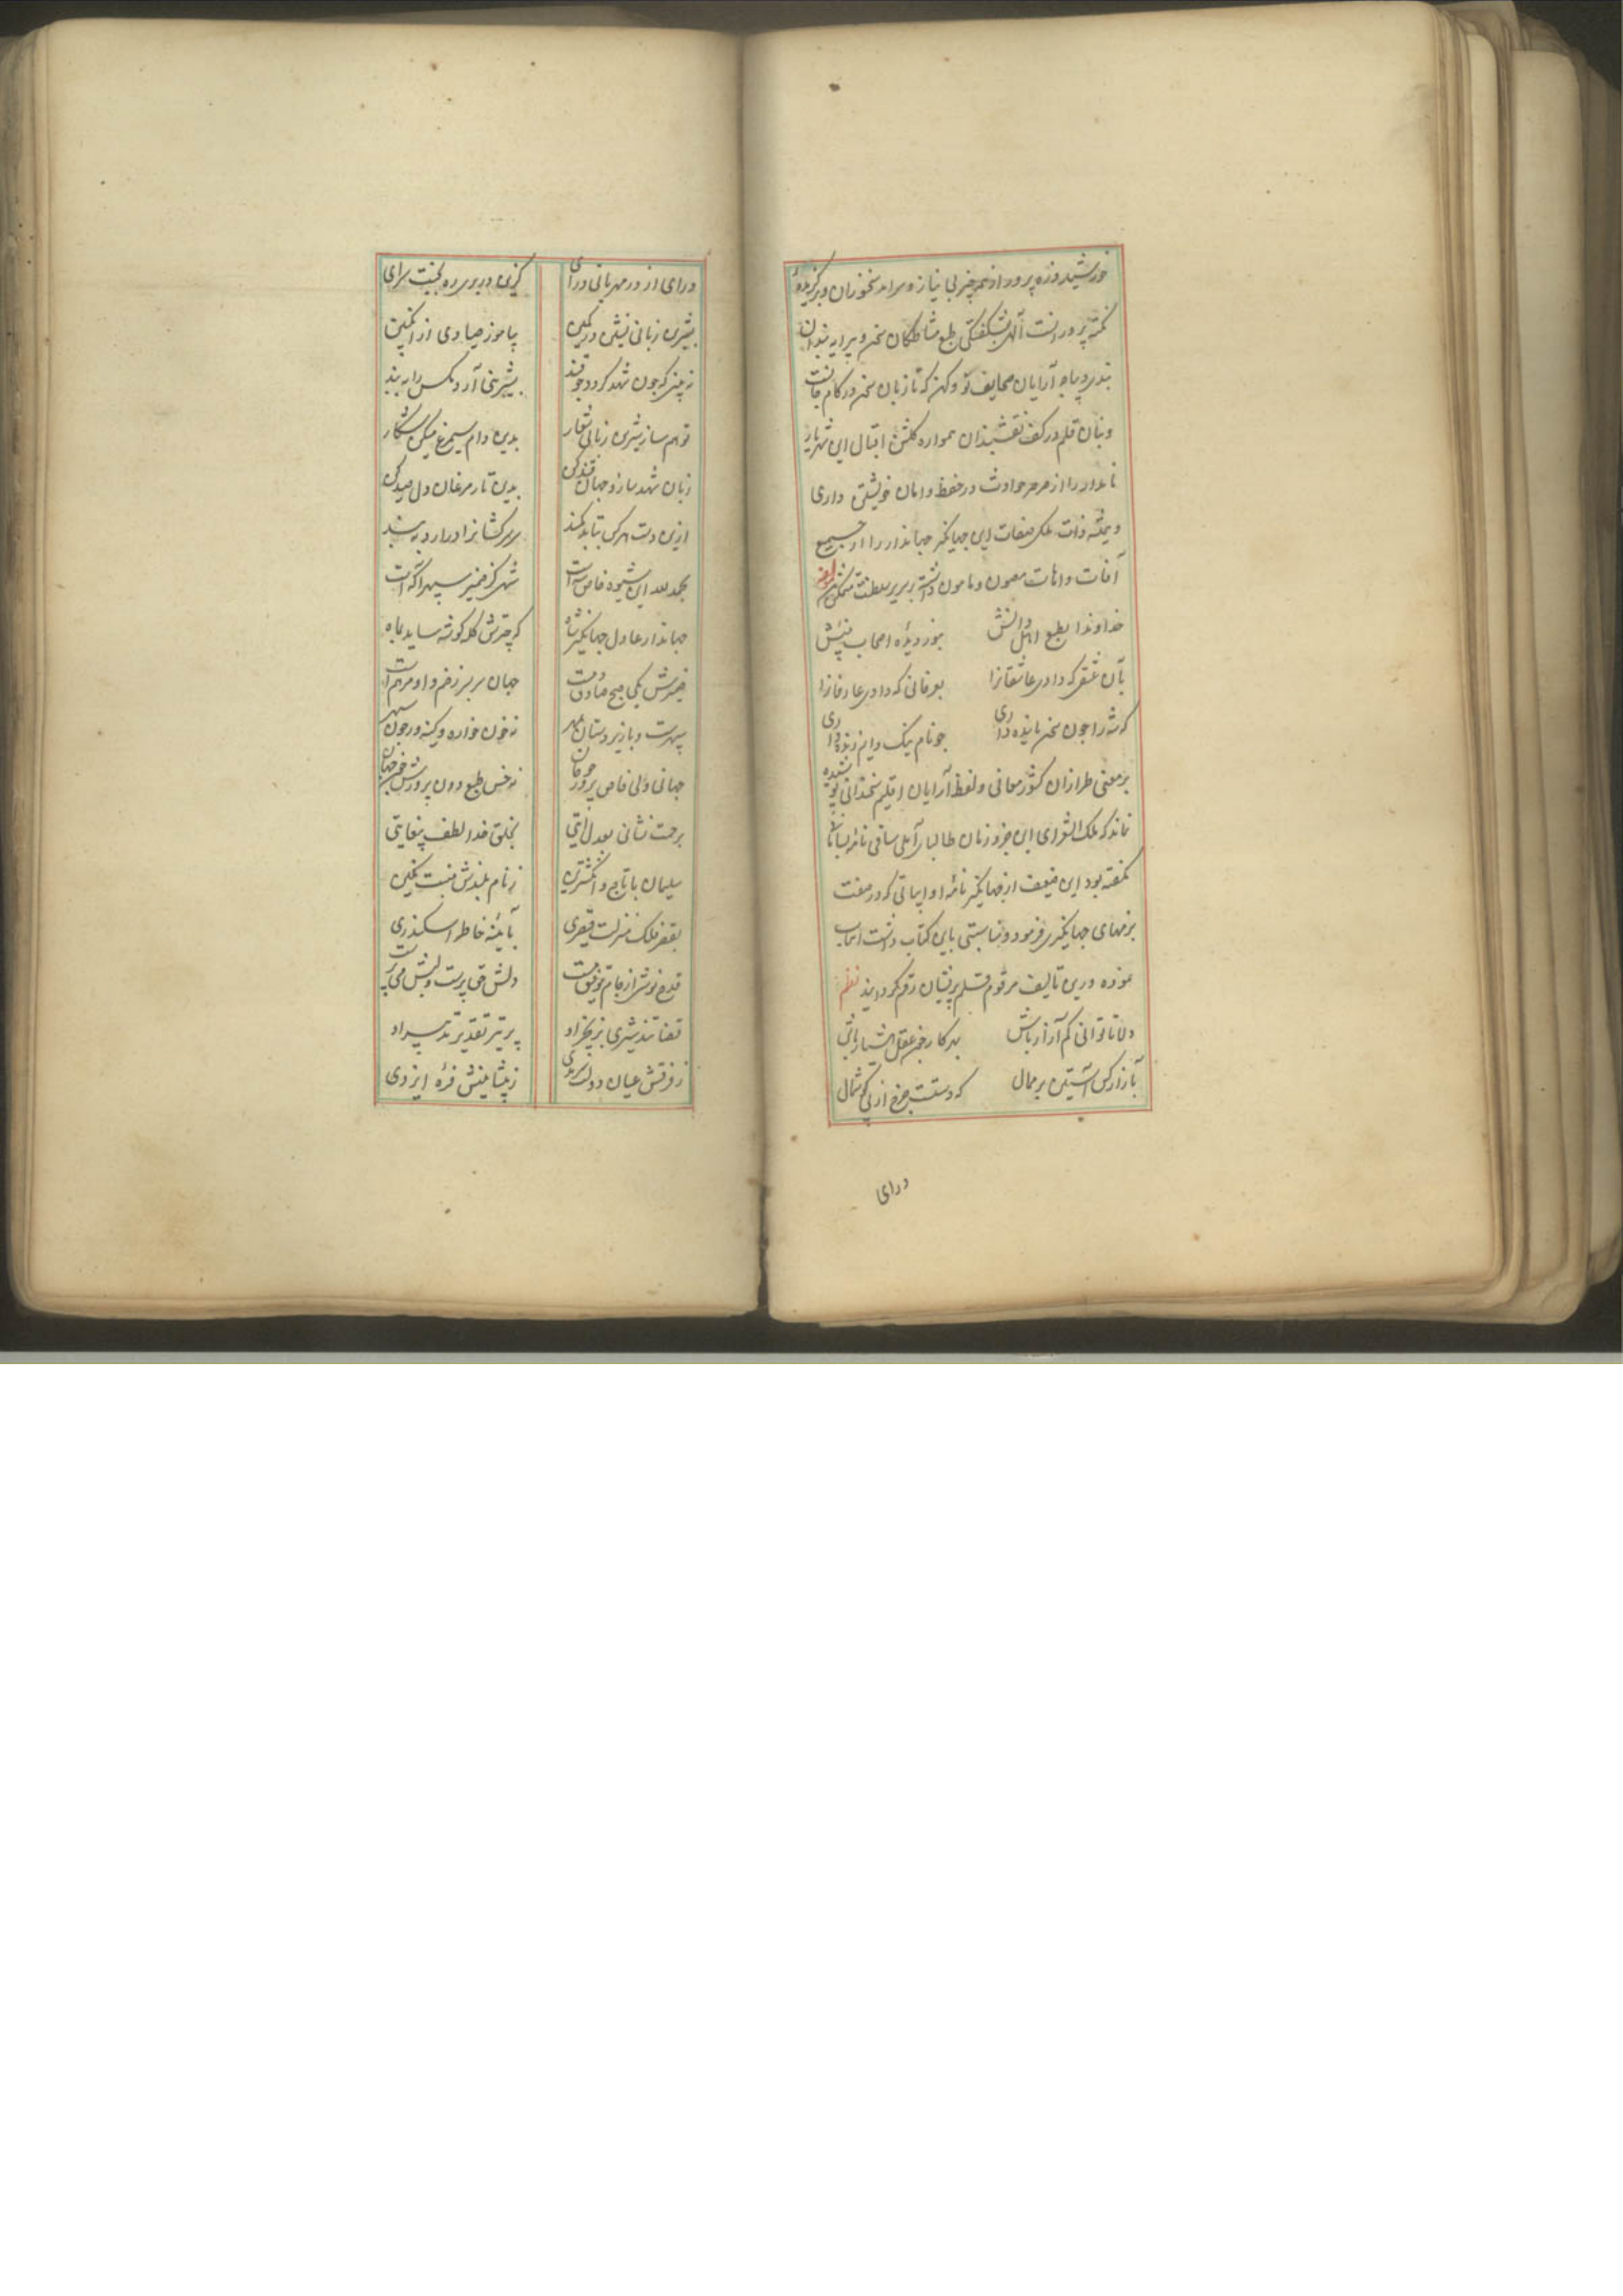 خورشید ذره پرور از هر چیز بی نیاز و سرآمد سخنوران و برگزیده
نکته پرورانست آلهی بشکفتگی طبع مشاطگان سخن و پیرایه بندان
دیباچه آرایان صحایف نو و کهن که تا زبان سخن در کام جانست
و بنان قلم در کف نقشبندان همواره گلشن اقبال این شهریار
نامدار را از صرصر حوادث در حفظ و امان خویشتن داری
و همیشه ذات ملک صفات این جهانگیر جهاندار را از جمیع
آفات و اهات مصون و مامون داشته بر سریر سلطنت متمکن
خداوندا بطبع اهل دانش بنور دیده اصحاب بینش
بآن عشقی که دادی عاشقانرا بعرفانی که دادی عارفانرا
که شه را چون سخن پاینده داری چو نام نیک دایم زنده داری
بر معنی طرازان کشور معانی و لفظ آرایان اقلیم سخندانی پوشیده
نماند که ملک الشعرای این جزو زمان طالبای آملی ساقی نامه
نگفته بود این ضعیف از جهانگیر نامه او ابیاتی که در صفت
بزمهای جهانگیری فرموده و مناسبتی باین کتاب داشت انتخاب
نموده درین تالیف مرقوم قلم پریشان رقم گردانید نظم
دلا تا توانی کم آزار باش بهر کار چون عقل هشیار باش
بآزار کس آستین بر ممال که دستت برد چرخ از گوشمال
درای
درای از در مهربانی درای کزین در بری ره بجنت سرای
بشیرین زبانی نشین در کمین بیاموز صیادی از انگبین
نه بینی که چون شهد گردد چو قند بشیرینی آرد مگس را به بند
تو هم ساز شیرین زبانی شعار بدین دام سیمرغ میکن شکار
زبان شهد ساز و جهان قند کن بدین تار مرغان دل صید کن
ازین دست هر کس بتابد کمند سر سرکشانرا درآرد به بند
بحمدلله این شیوه خاص شه است شهی کز ضمیر سپهر آگه است
جهاندار عادل جهانگیر شاه که چترش کله گوشه ساید بماه
ضمیرش یکی صبح صادق دمست جهان سربسر زخم و او مرهم است
سپهرست و با زیردستان بمهر نه خون خواره و کینه ور چون سپهر
جهانی ولی خاص پرور چو جان نه خس طبع و دون پرورش چون جهان
برحمت نشانی بعدل آیتی بخلق خدا لطف بیغایتی
سلیمان با تاج و انگشترین ز نام بلندش نگین
بقصر فلک منزلت قیصری بآئینه خاطر اسکندری
قدح نوش از جام توفیق مست دلش حق پرست و لبش می پرست
قضا تند شیری بزنجیر او پر تیر تقدیر تدبیر او
ز فرقش عیان دولت سرمدی ز پیشانیش فره ایزدی